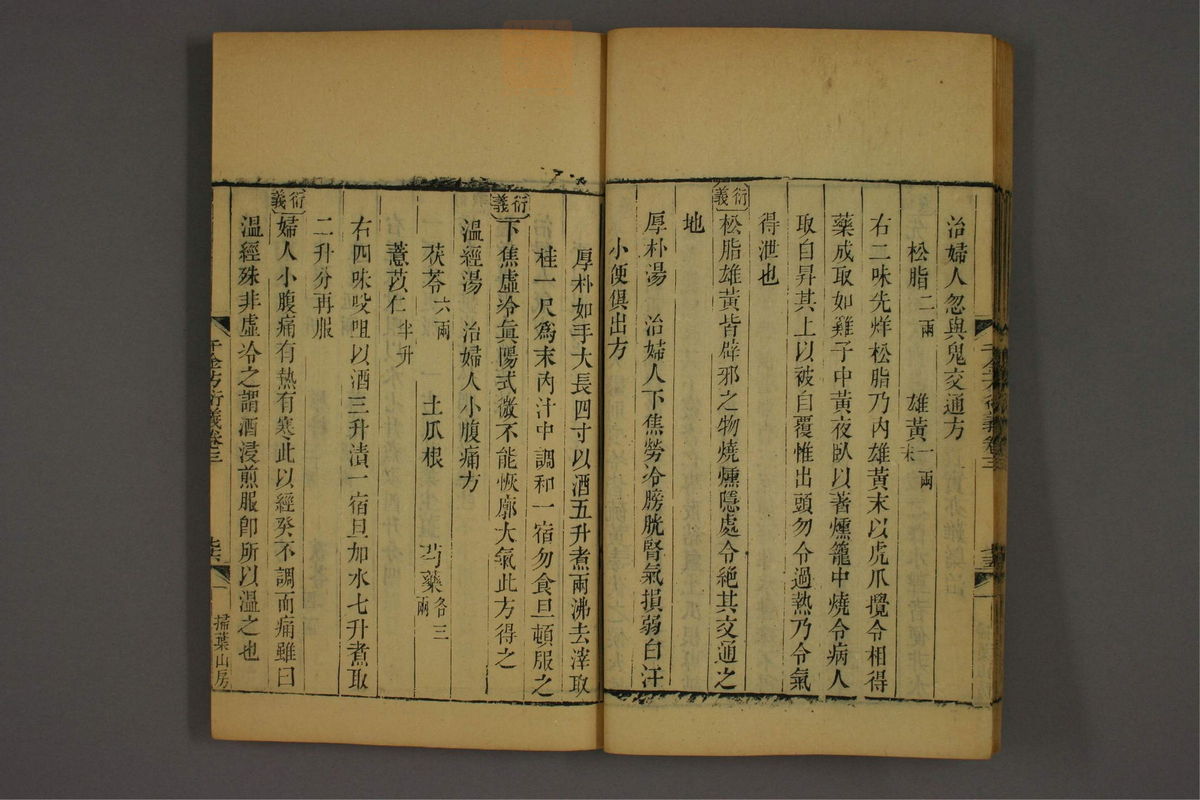 治婦人忽與鬼交通方
松脂二兩　雄黃一兩末
右二味先烊松脂乃內雄黃末以虎爪攪令相得
藥成取如雞子中黃夜臥以著燻籠中燒令病人
取自昇其上以被自覆惟出頭勿令過熱乃令氣
得泄也
衍義
松脂雄黃皆辟邪之物燒燻隱處令絕其交通之
地
厚朴湯　治婦人下焦勞冷膀胱腎氣損弱白汗
小便俱出方
厚朴如手大長四寸以酒五升煮兩沸去滓取
桂一尺爲末內汁中調和一宿勿食旦頓服之
衍義
下焦虛冷眞陽式微不能恢廓大氣此方得之
溫經湯　治婦人小腹痛方
茯苓六兩　土瓜根　芍藥各三兩
薏苡仁半升
右四味㕮咀以酒三升漬一宿旦加水七升煮取
二升分再服
衍義
婦人小腹痛有熱有寒此以經癸不調而痛雖曰
溫經殊非虛冷之謂酒浸煎服卽所以溫之也
千金方衍義卷三
掃葉山房